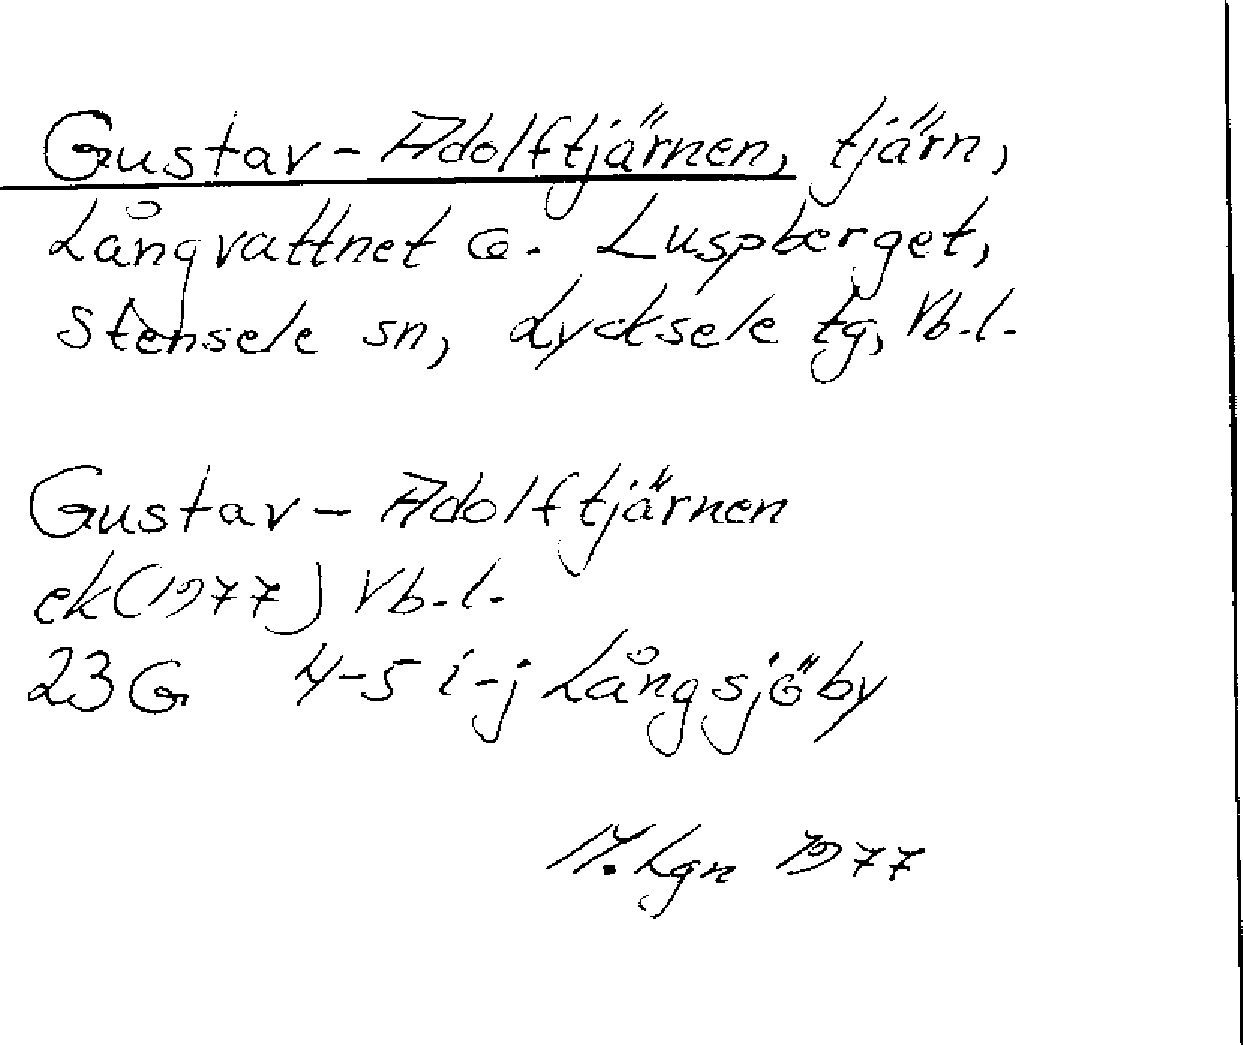 Gustav-Adolftjärnen, tjärn,
Långvattnet o. Luspberget,
Stensele sn, Lycksele tg, Vb.l.
Gustav-Adolftjärnen
ek (1977) Vb.l.
23G 4-5 i-j Långsjöby
M. Lgn 1977